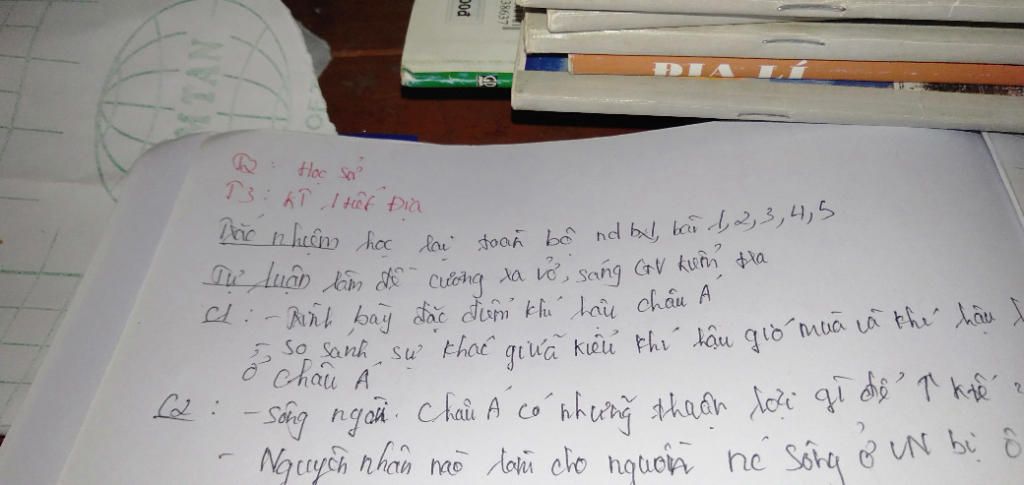 38637
ood
ĐỊA LÍ
M TAN
OF
T2: Học sử
T3: KT 1 tiết Địa
Trắc nhiệm học lại toàn bộ nd bài, bài 1, 2, 3, 4, 5
Tự luận làm đề cương ra vở, sáng GV kiểm tra
C1: - Trình bày đặc điểm khí hậu châu Á
So sánh sự khác giữa kiểu khí hậu gió mùa và khí hậu l
ở Châu Á
C2: - Sông ngòi. Châu Á có những thuận lợi gì để ↑ ktế
- Nguyên nhân nào làm cho nguồn nc sông ở VN bị ô